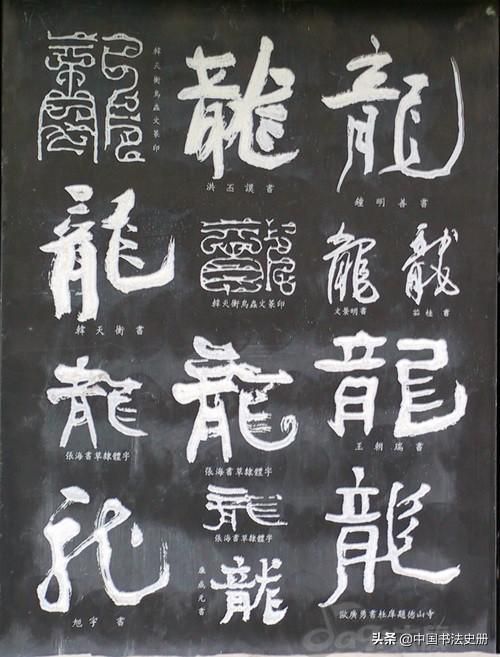 龍
韓天衡鳥蟲文篆印
龍
洪丕謨書
龍
鐘明善書
龍
韓天衡書
龍
韓天衡鳥蟲文篆印
龍
文景明書
龍
茹桂書
龍
張海書草隸體字
龍
張海書草隸體字
龍
王朝瑞書
龍
旭宇書
龍
張海書草隸體字
龍
康成元書
龍
歐廣勇書杜庠題德山寺
头条 @中国书法史册